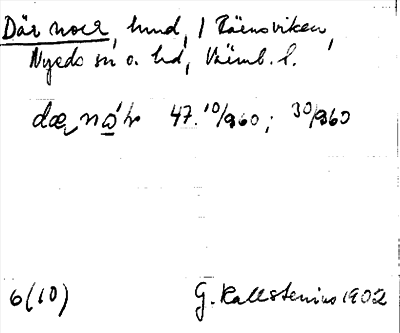 Där norr, hund, i Räensviken,
Nyeds sn o. hd, Värml. l.
47. 10/960; 30/960
6(10) G. Kallstenius 1902